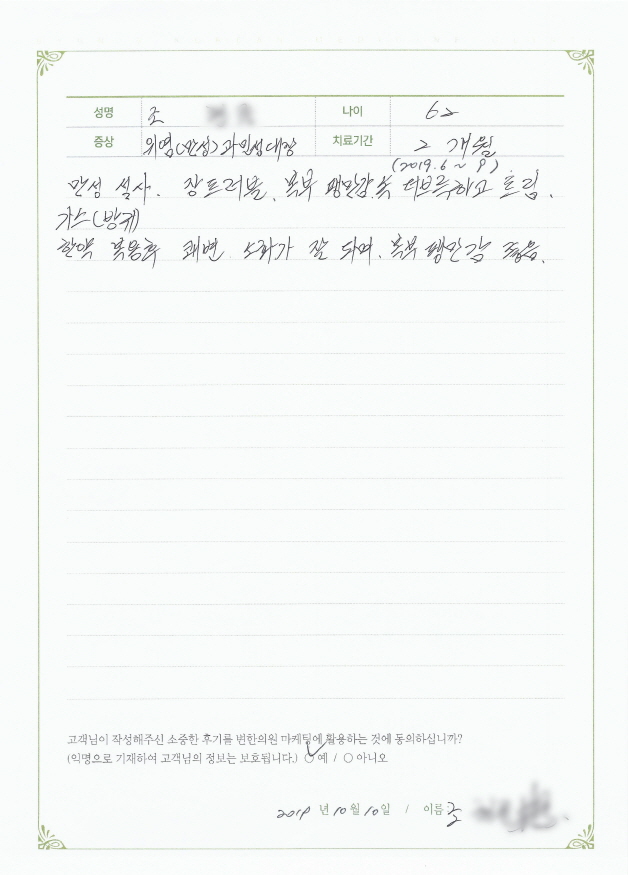 성명 조 나이 62
증상 위염(만성) 과민성대장 치료기간 2 개월
(2019.6 ~ 9).
만성 설사. 장트러블, 복부 팽만감. 속 더부룩하고 트림.
가스(방귀)
한약 복용후 쾌변 소화가 잘 되며. 복부 팽만감 좋음.
고객님이 작성해주신 소중한 후기를 변한의원 마케팅에 활용하는 것에 동의하십니까?
(익명으로 기재하여 고객님의 정보는 보호됩니다.) ○ 예 / ○ 아니오
2019 년 10 월 10 일 / 이름 : 조